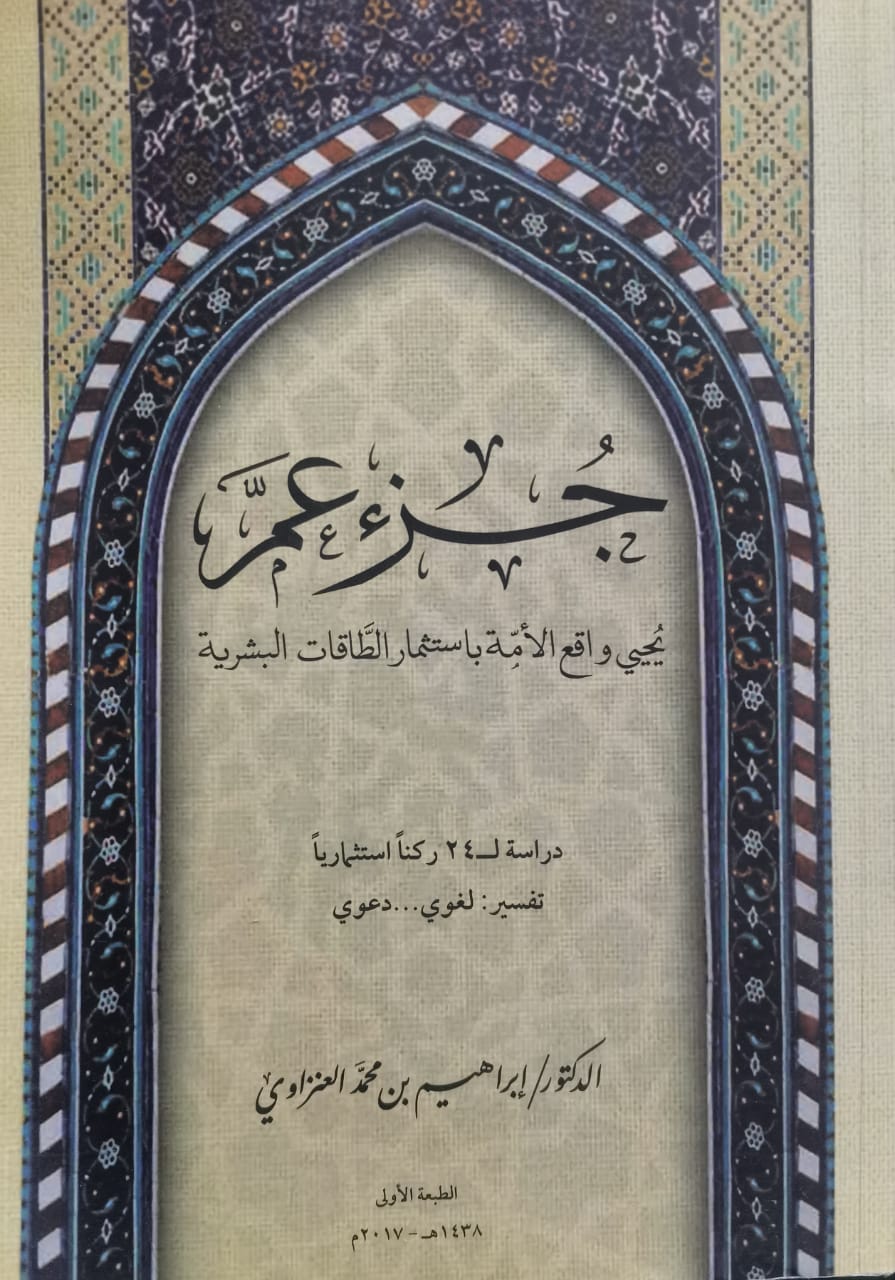 جُزء عمَّ
يُحيي واقع الأمّة باستثمار الطَّاقات البشرية
دراسة لـ٢٤ ركناً استثمارياً
تفسير: لغوي...دعوي
الدكتور/إبراهيم بن محمَّد العنزاوي
الطبعة الأولى
١٤٣٨هـ - ٢٠١٧م